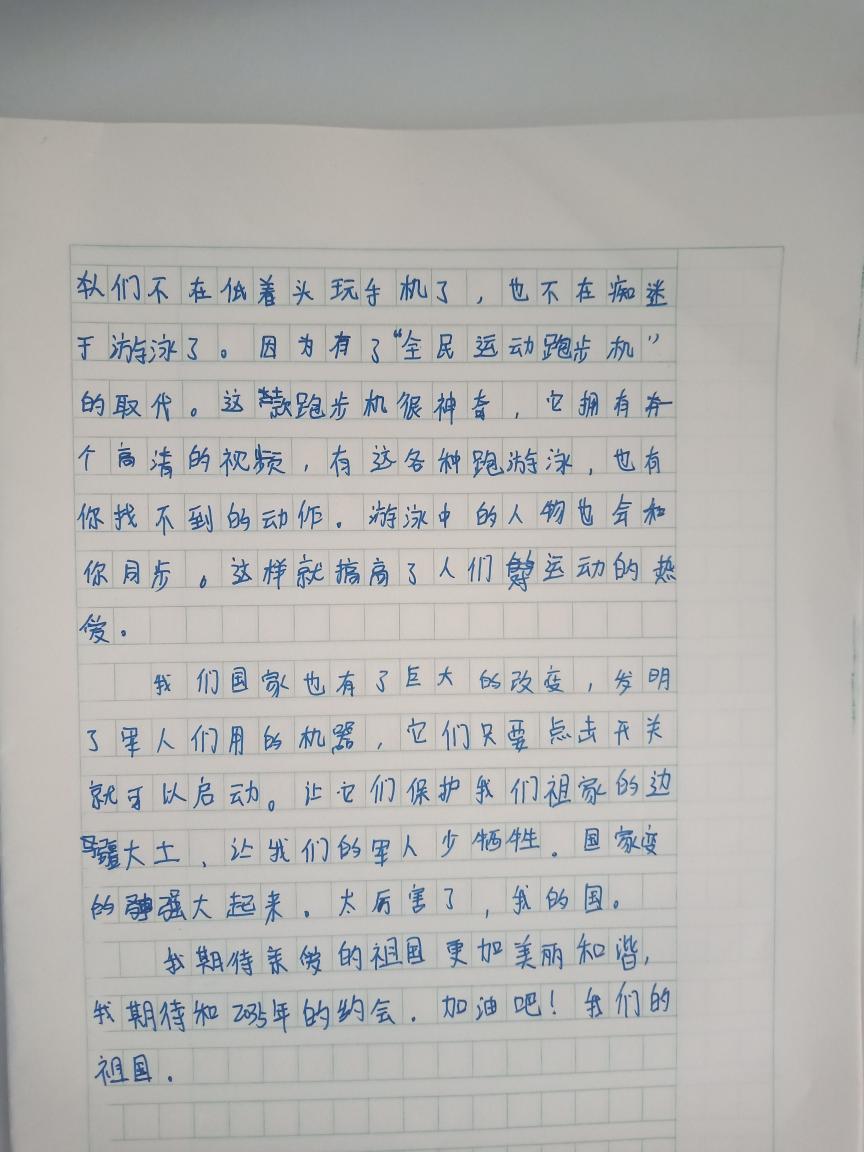 们不在低着头玩手机了，也不在痴迷
于游泳了。因为有了“全民运动跑步机”
的取代。这款跑步机很神奇，它拥有
个高清的视频，有这各种跑游泳，也有
你找不到的动作．游泳中的人物也会和
你同步。这样就搞高了人们对运动的热
爱。
我们国家也有了巨大的改变，发明
了军人们用的机器，它们只要点击开关
就可以启动。让它们保护我们祖家的边
疆大土、让我们的军人少牺牲．国家变
的强大起来．太厉害了，我的国。
我期待亲爱的祖国更加美丽和谐，
我期待和2035年的约会．加油吧！我们的
祖国．